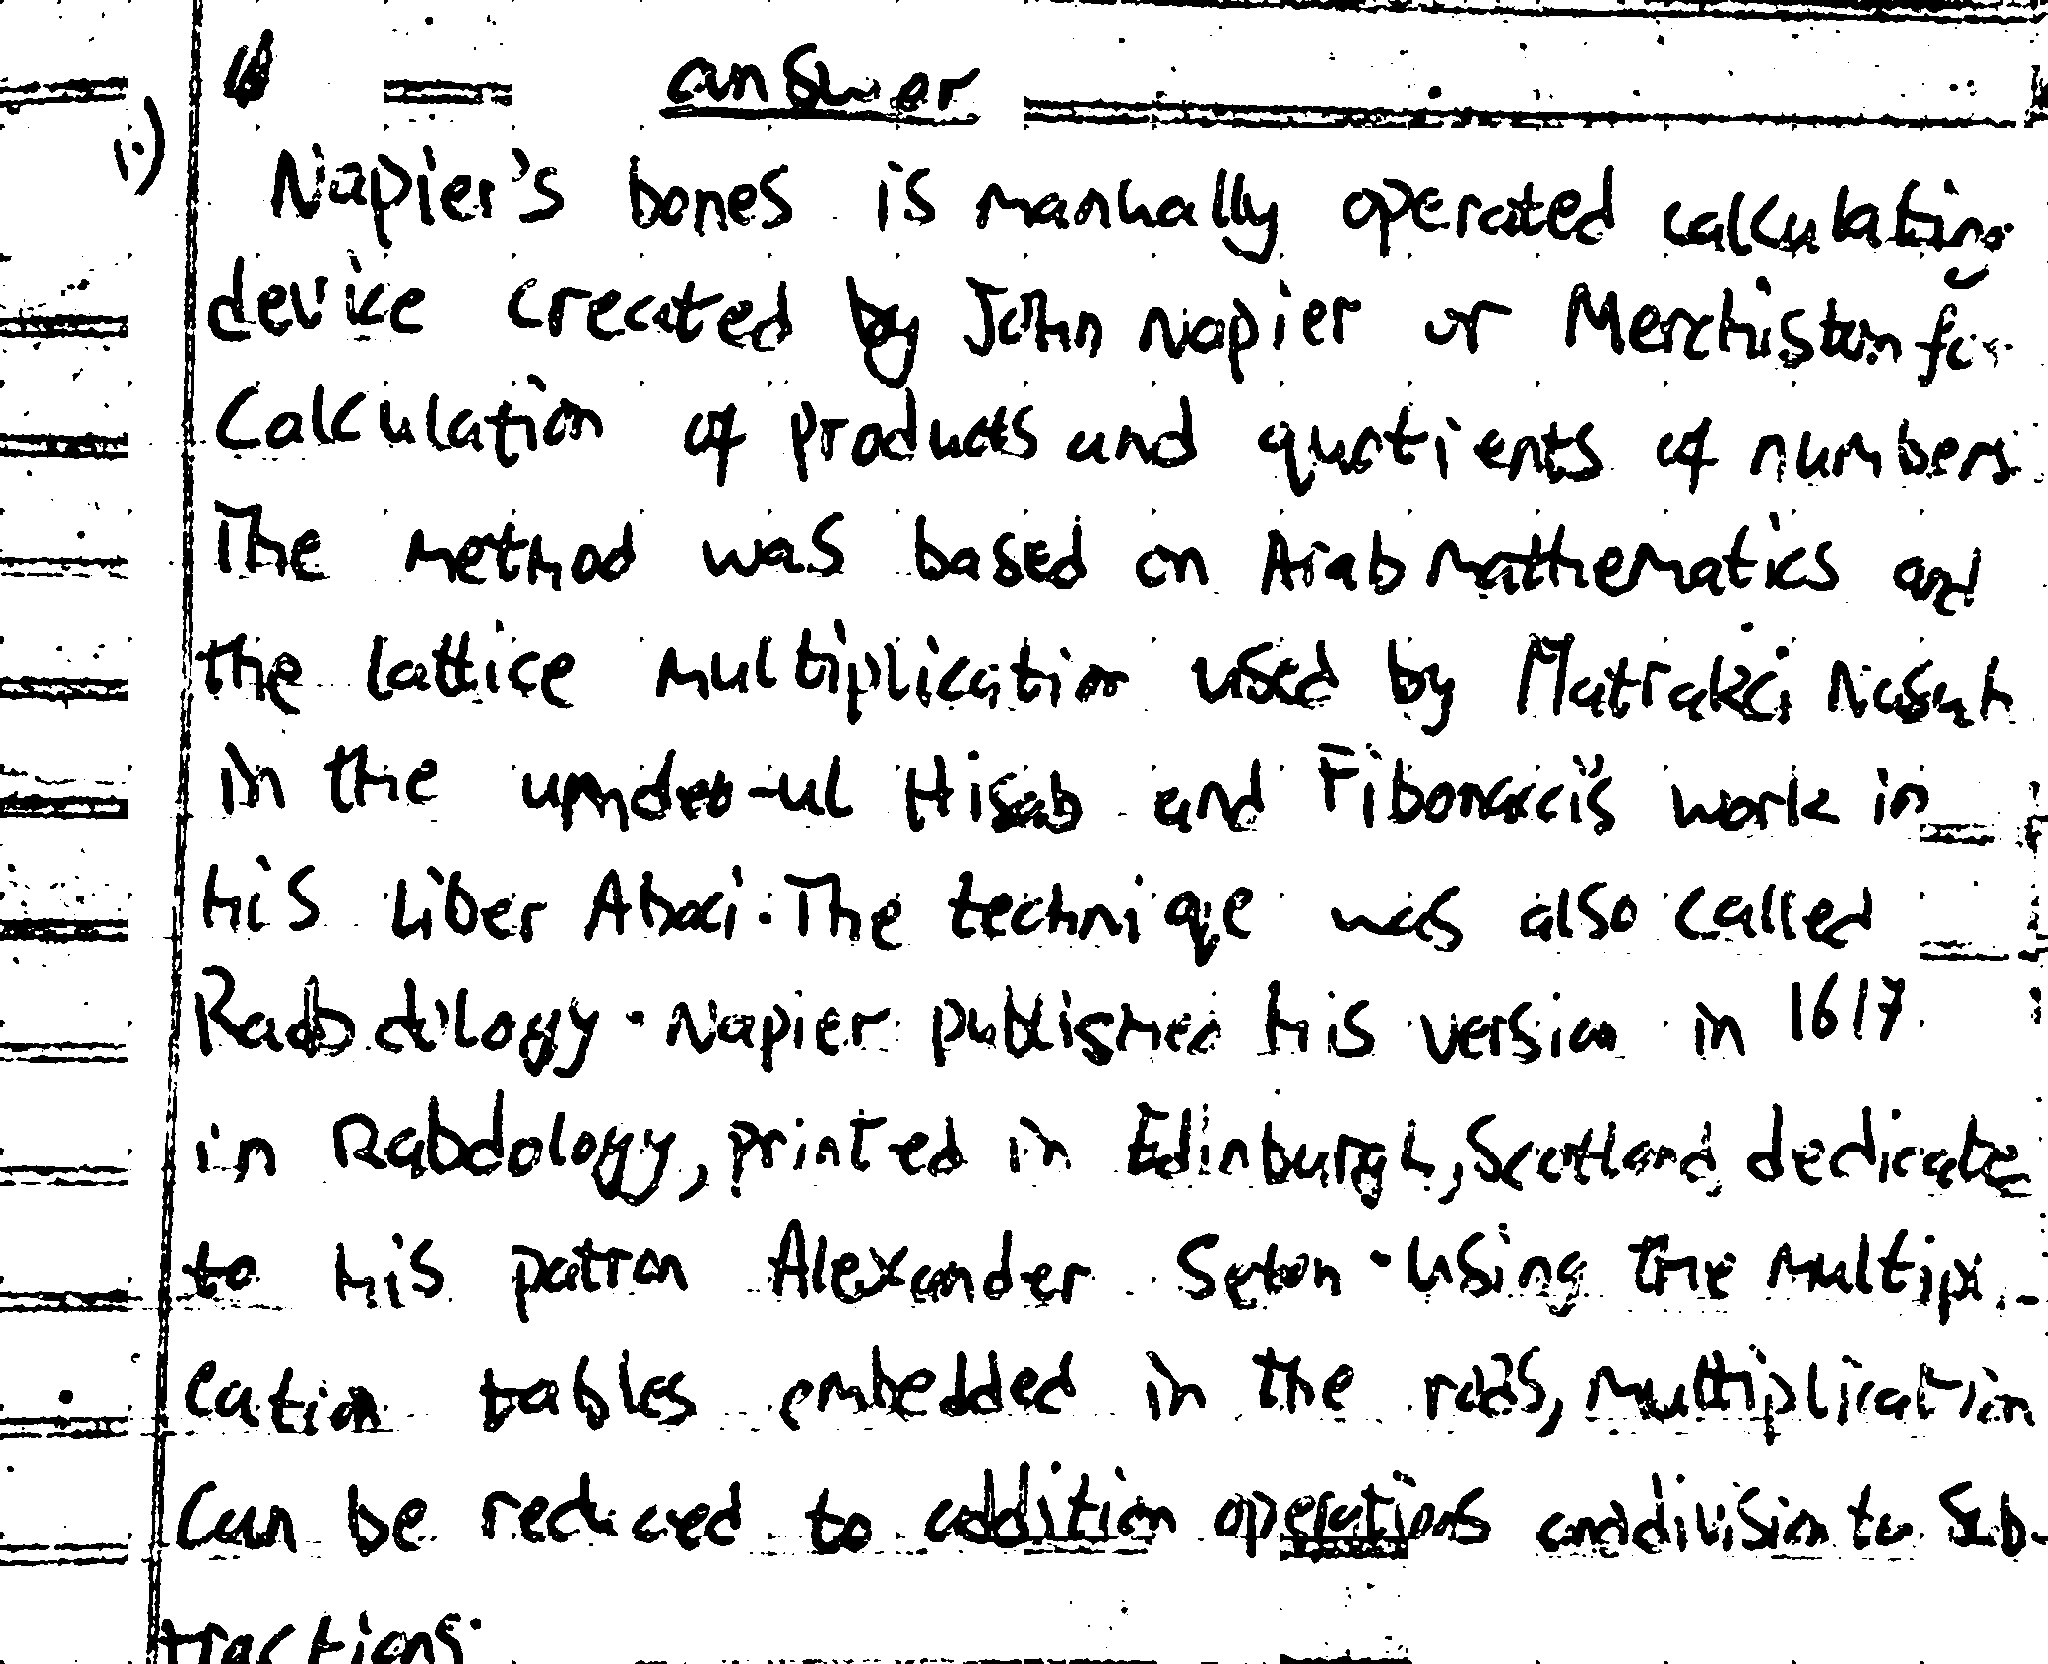 answer
1.) Napier's bones is manually operated calculating
device created by John Napier or Merchiston for
Calculation of products and quotients of numbers
The method was based on Arab mathematics and
the lattice multiplication used by Matrakci Nasuh
in the -ul Hisab and Fibonacci's work in
his Liber Abaci. The technique was also called
Rabdology. Napier published his version in 1617
in Rabdology, printed in Edinburgh, Scotland dedicate
to his patron Alexander Seton. Using the multipl-
cation tables embedded in the rods, multiplication
Can be reduced to addition operations and division to Sub-
tractions.